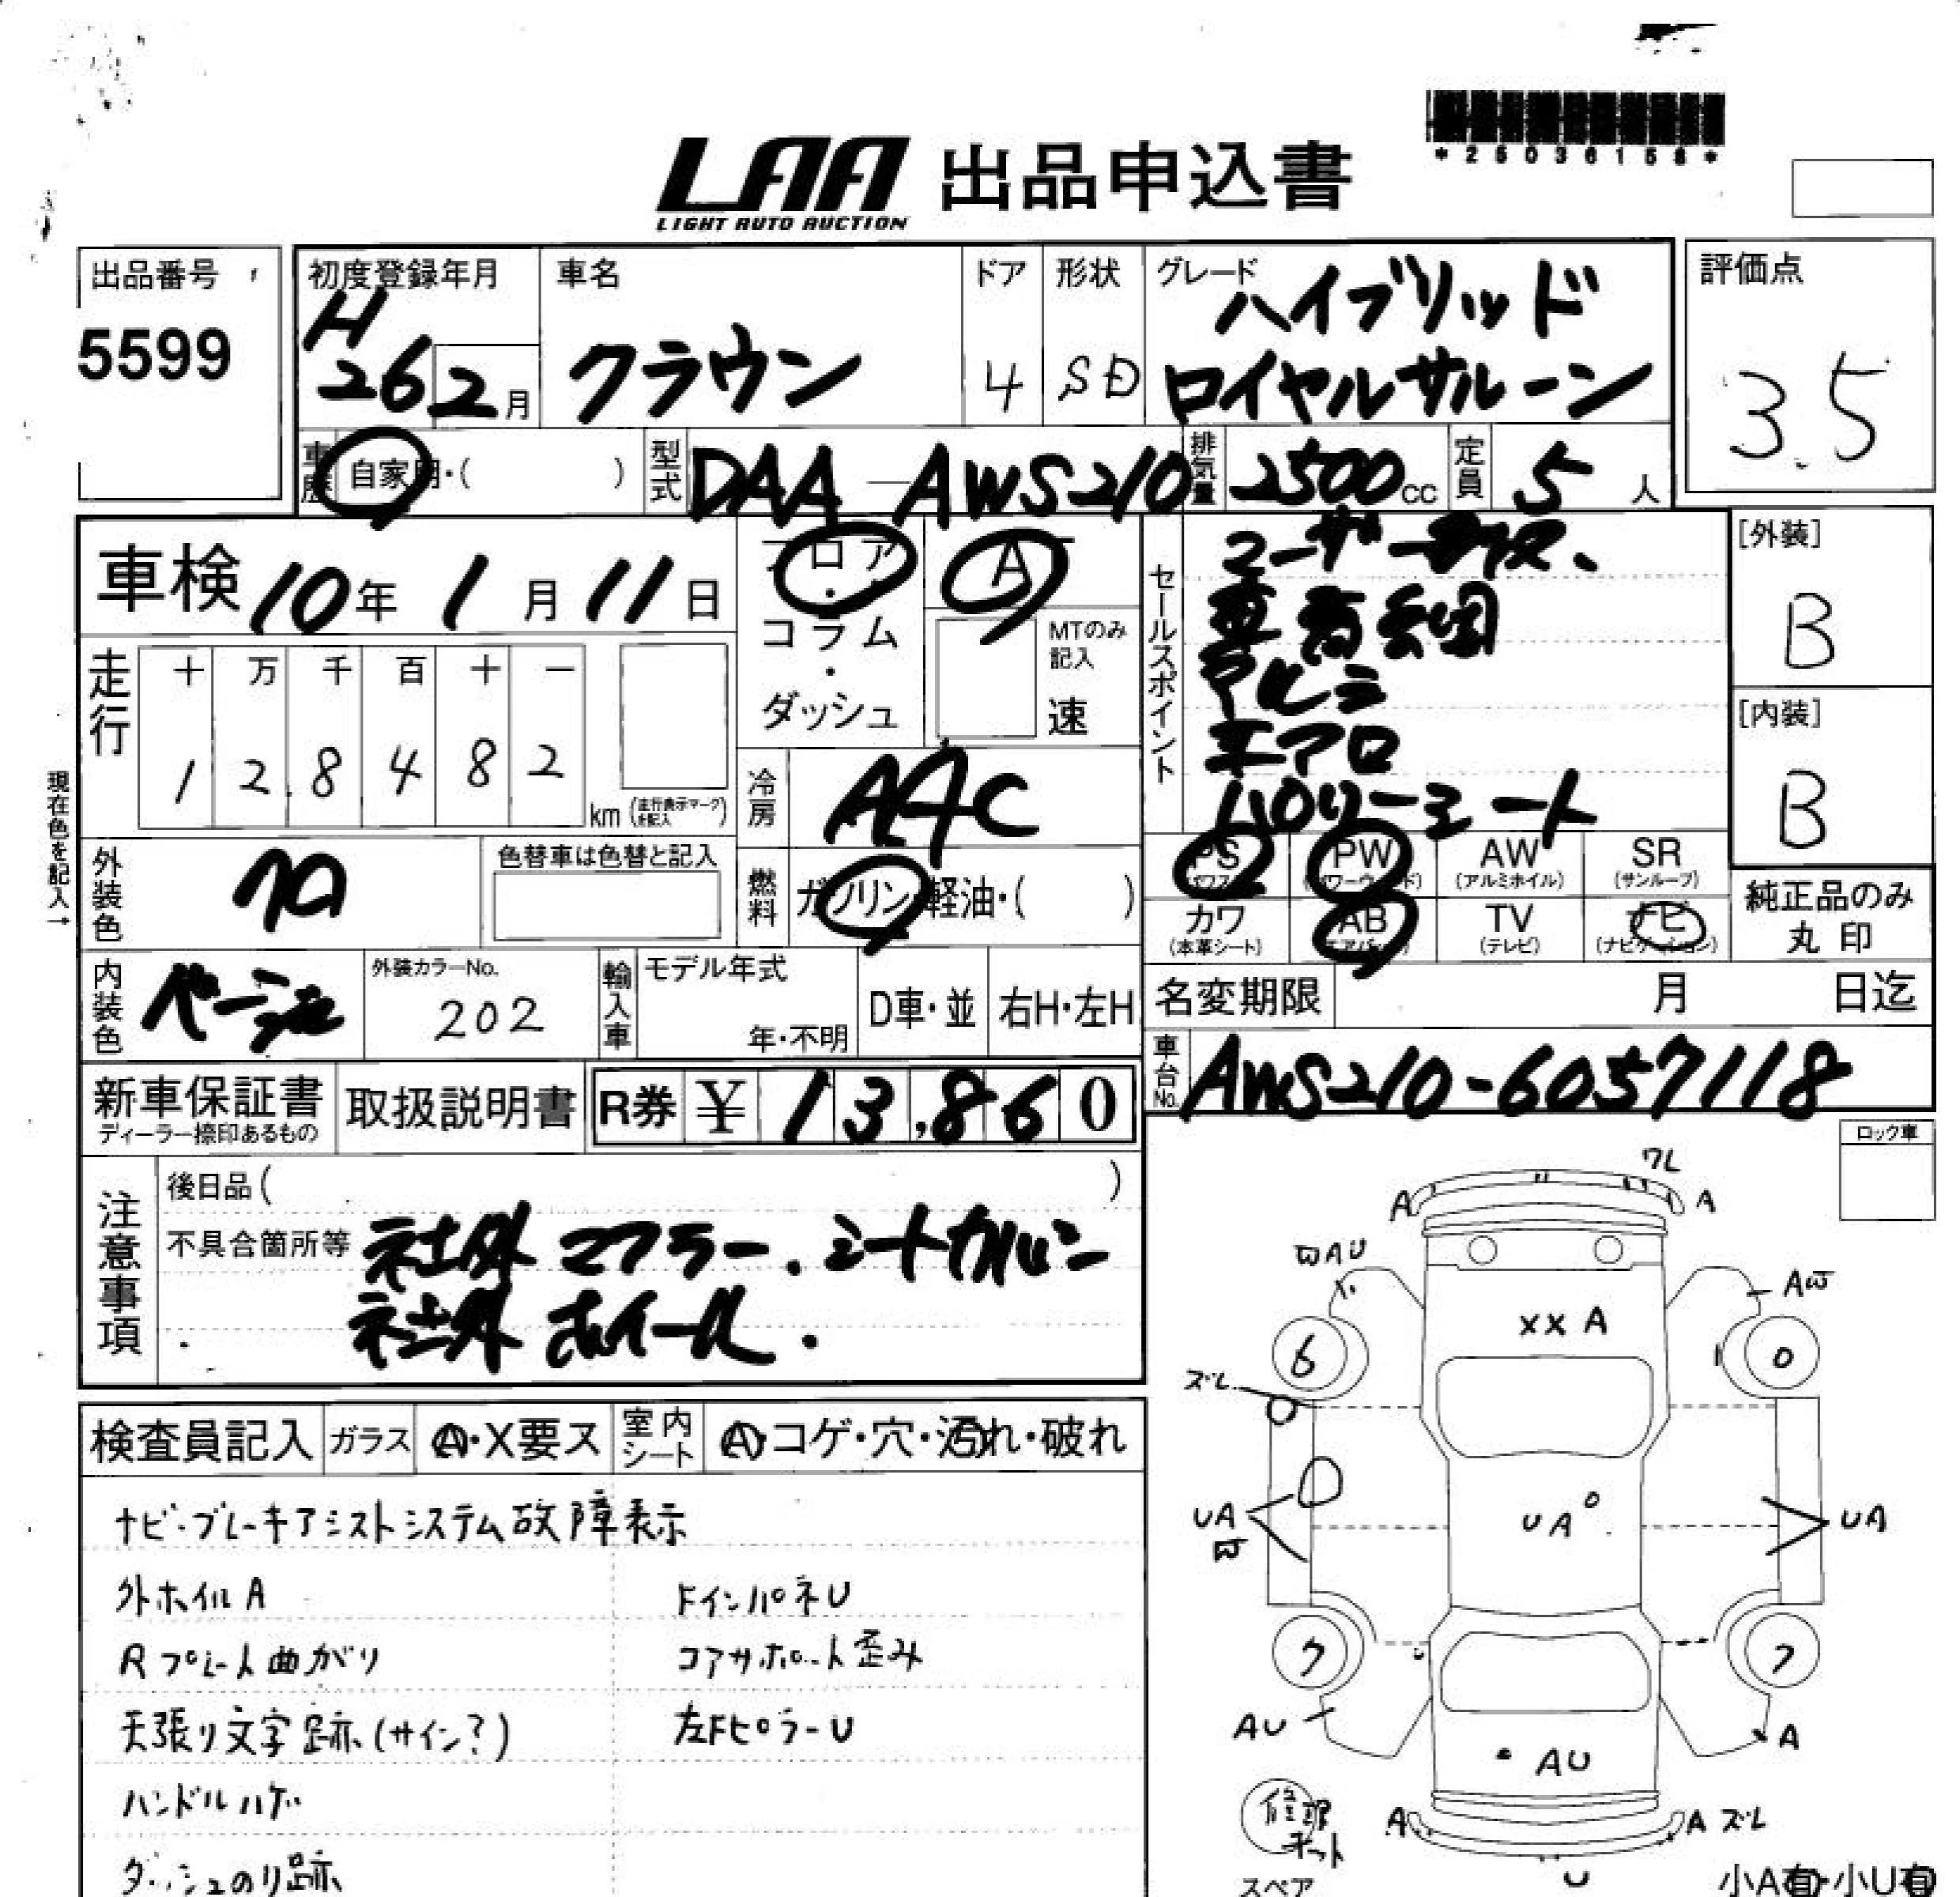 *25036158*
LAA 出品申込書
LIGHT AUTO AUCTION
出品番号
5599
初度登録年月
H
26 2 月
車名
クラウン
ドア
4
形状
SD
グレード
ハイブリッド
ロイヤルサルーン
評価点
3.5
車歴
自家用・( )
型式
DAA-AWS210
排気量
2500 cc
定員
5 人
車検 10年 1月 11日
フロア
・
コラム
・
ダッシュ
A
MTのみ
記入
速
セールスポイント
アルミ
エアロ
パワーシート
[外装]
B
[内装]
B
走行
十 万 千 百 十 一
1 2.8 4 8 2
km (走行表示マークを記入)
現在色を記入→
冷房
AAC
外装色
クロ
色替車は色替と記入
燃料
ガソリン・軽油・( )
PS
PW
(パワーウィンド)
AW
(アルミホイル)
SR
(サンルーフ)
カワ
(本革シート)
AB
(エアバッグ)
TV
(テレビ)
ナビ
(ナビゲーション)
純正品のみ
丸 印
内装色
ベージュ
外装カラーNo.
202
輸入車
モデル年式
年・不明
D車・並
右H・左H
名変期限 月 日迄
車台No.
AWS210-6057118
新車保証書
ディーラー捺印あるもの
取扱説明書
R券 ¥ 13,860
ロック車
注意事項
後日品( )
不具合箇所等 社外マフラー.シートカバー
社外ホイール.
検査員記入
ガラス
A・X要ス
室内シート
A・コゲ・穴・汚れ・破れ
ナビ・ブレーキアシストシステム故障表示
外ホイルA
FインパネU
Rプレート曲がり
コアサポート歪み
天張り文字跡(サイン?)
左FピラーU
ハンドルハゲ
ダッシュのり跡
ワレ
A
A
AU
A
XX A
6
0
ズレ
UA
UA
UA
7
7
AU
A
AU
修理
キット
スペア
A
A ズレ
U
小A有・小U有